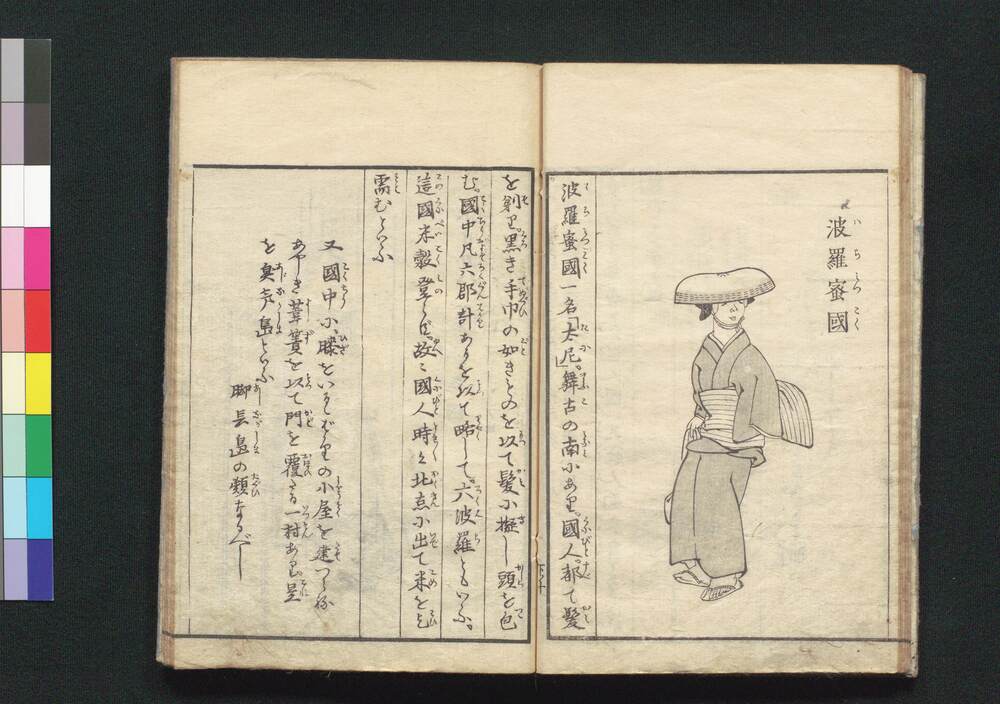 波羅蜜國
波羅蜜國一名太尼舞古の南にあり國人都て髪
を剃り黒き手巾の如きものを以て髪に擬し頭を包
む國中凡六郡計あるを以て略して六波羅ともいふ
這國米穀登らず故に國人時々北点に出て米を乞
需むといふ
又國中に膝をいるゝばかりの小屋を建つらね
あやしき葦簀を以て門を覆ふ一村あり
を臭氣島といふ
脚長島の類なるべし